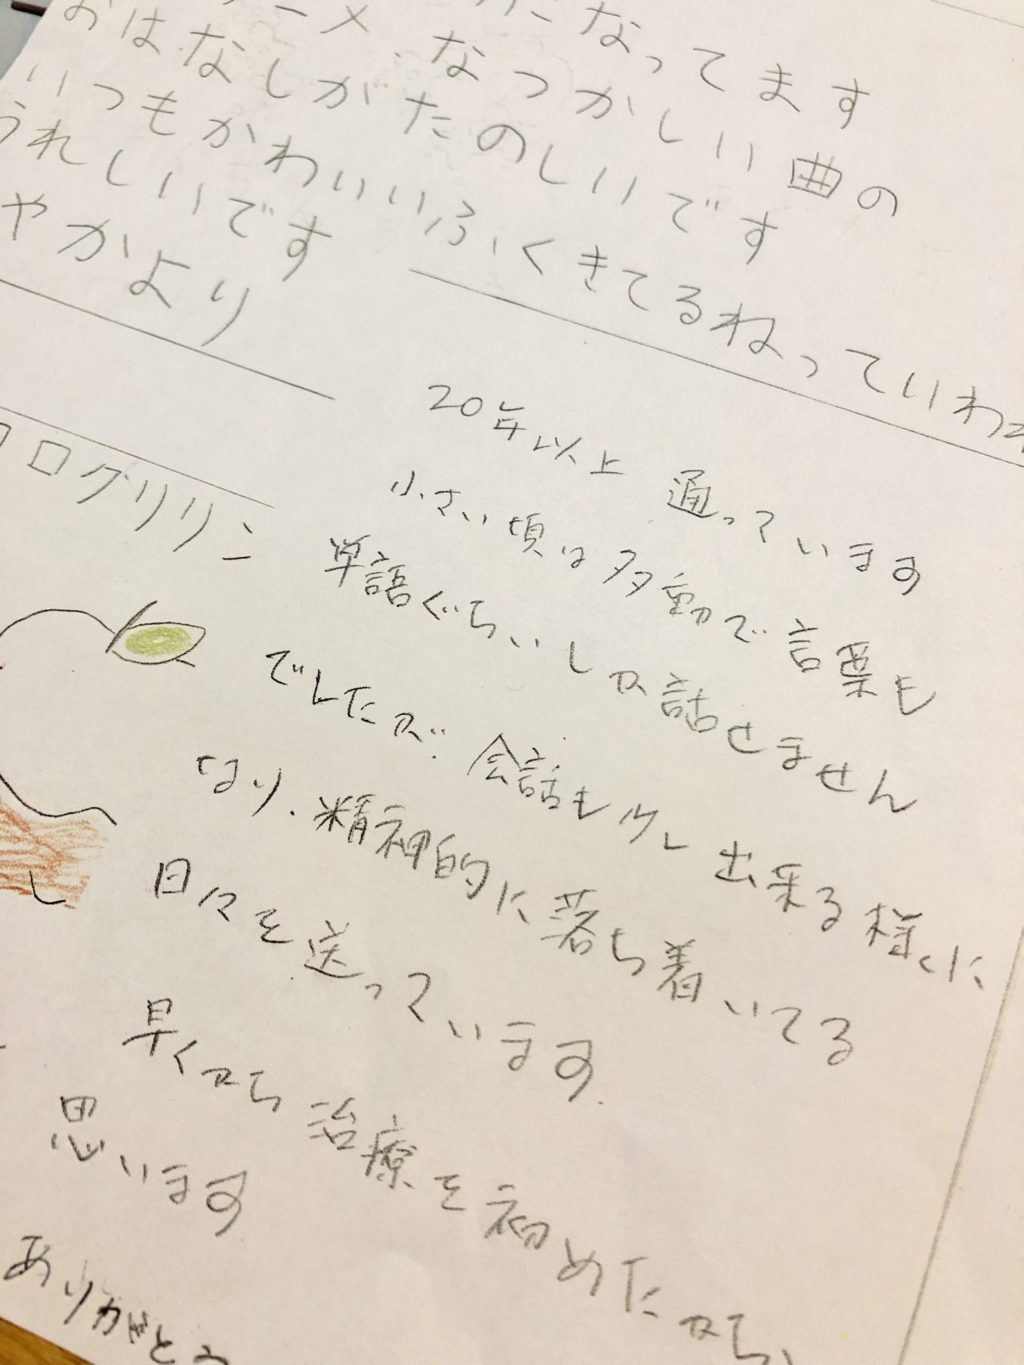 になってます
なつかしい曲の
おはなしがたのしいです
いつもかわいいふくきてるねっていわ
うれしいです
やかより
ログリリン
20年以上 通っています
小さい頃は多動で言葉も
単語ぐらいしか話せません
でしたが、会話も少し出来る様に
なり、精神的に落ち着いてる
日々を送っています。
早くから治療を初めたから、
思います
ありがとう